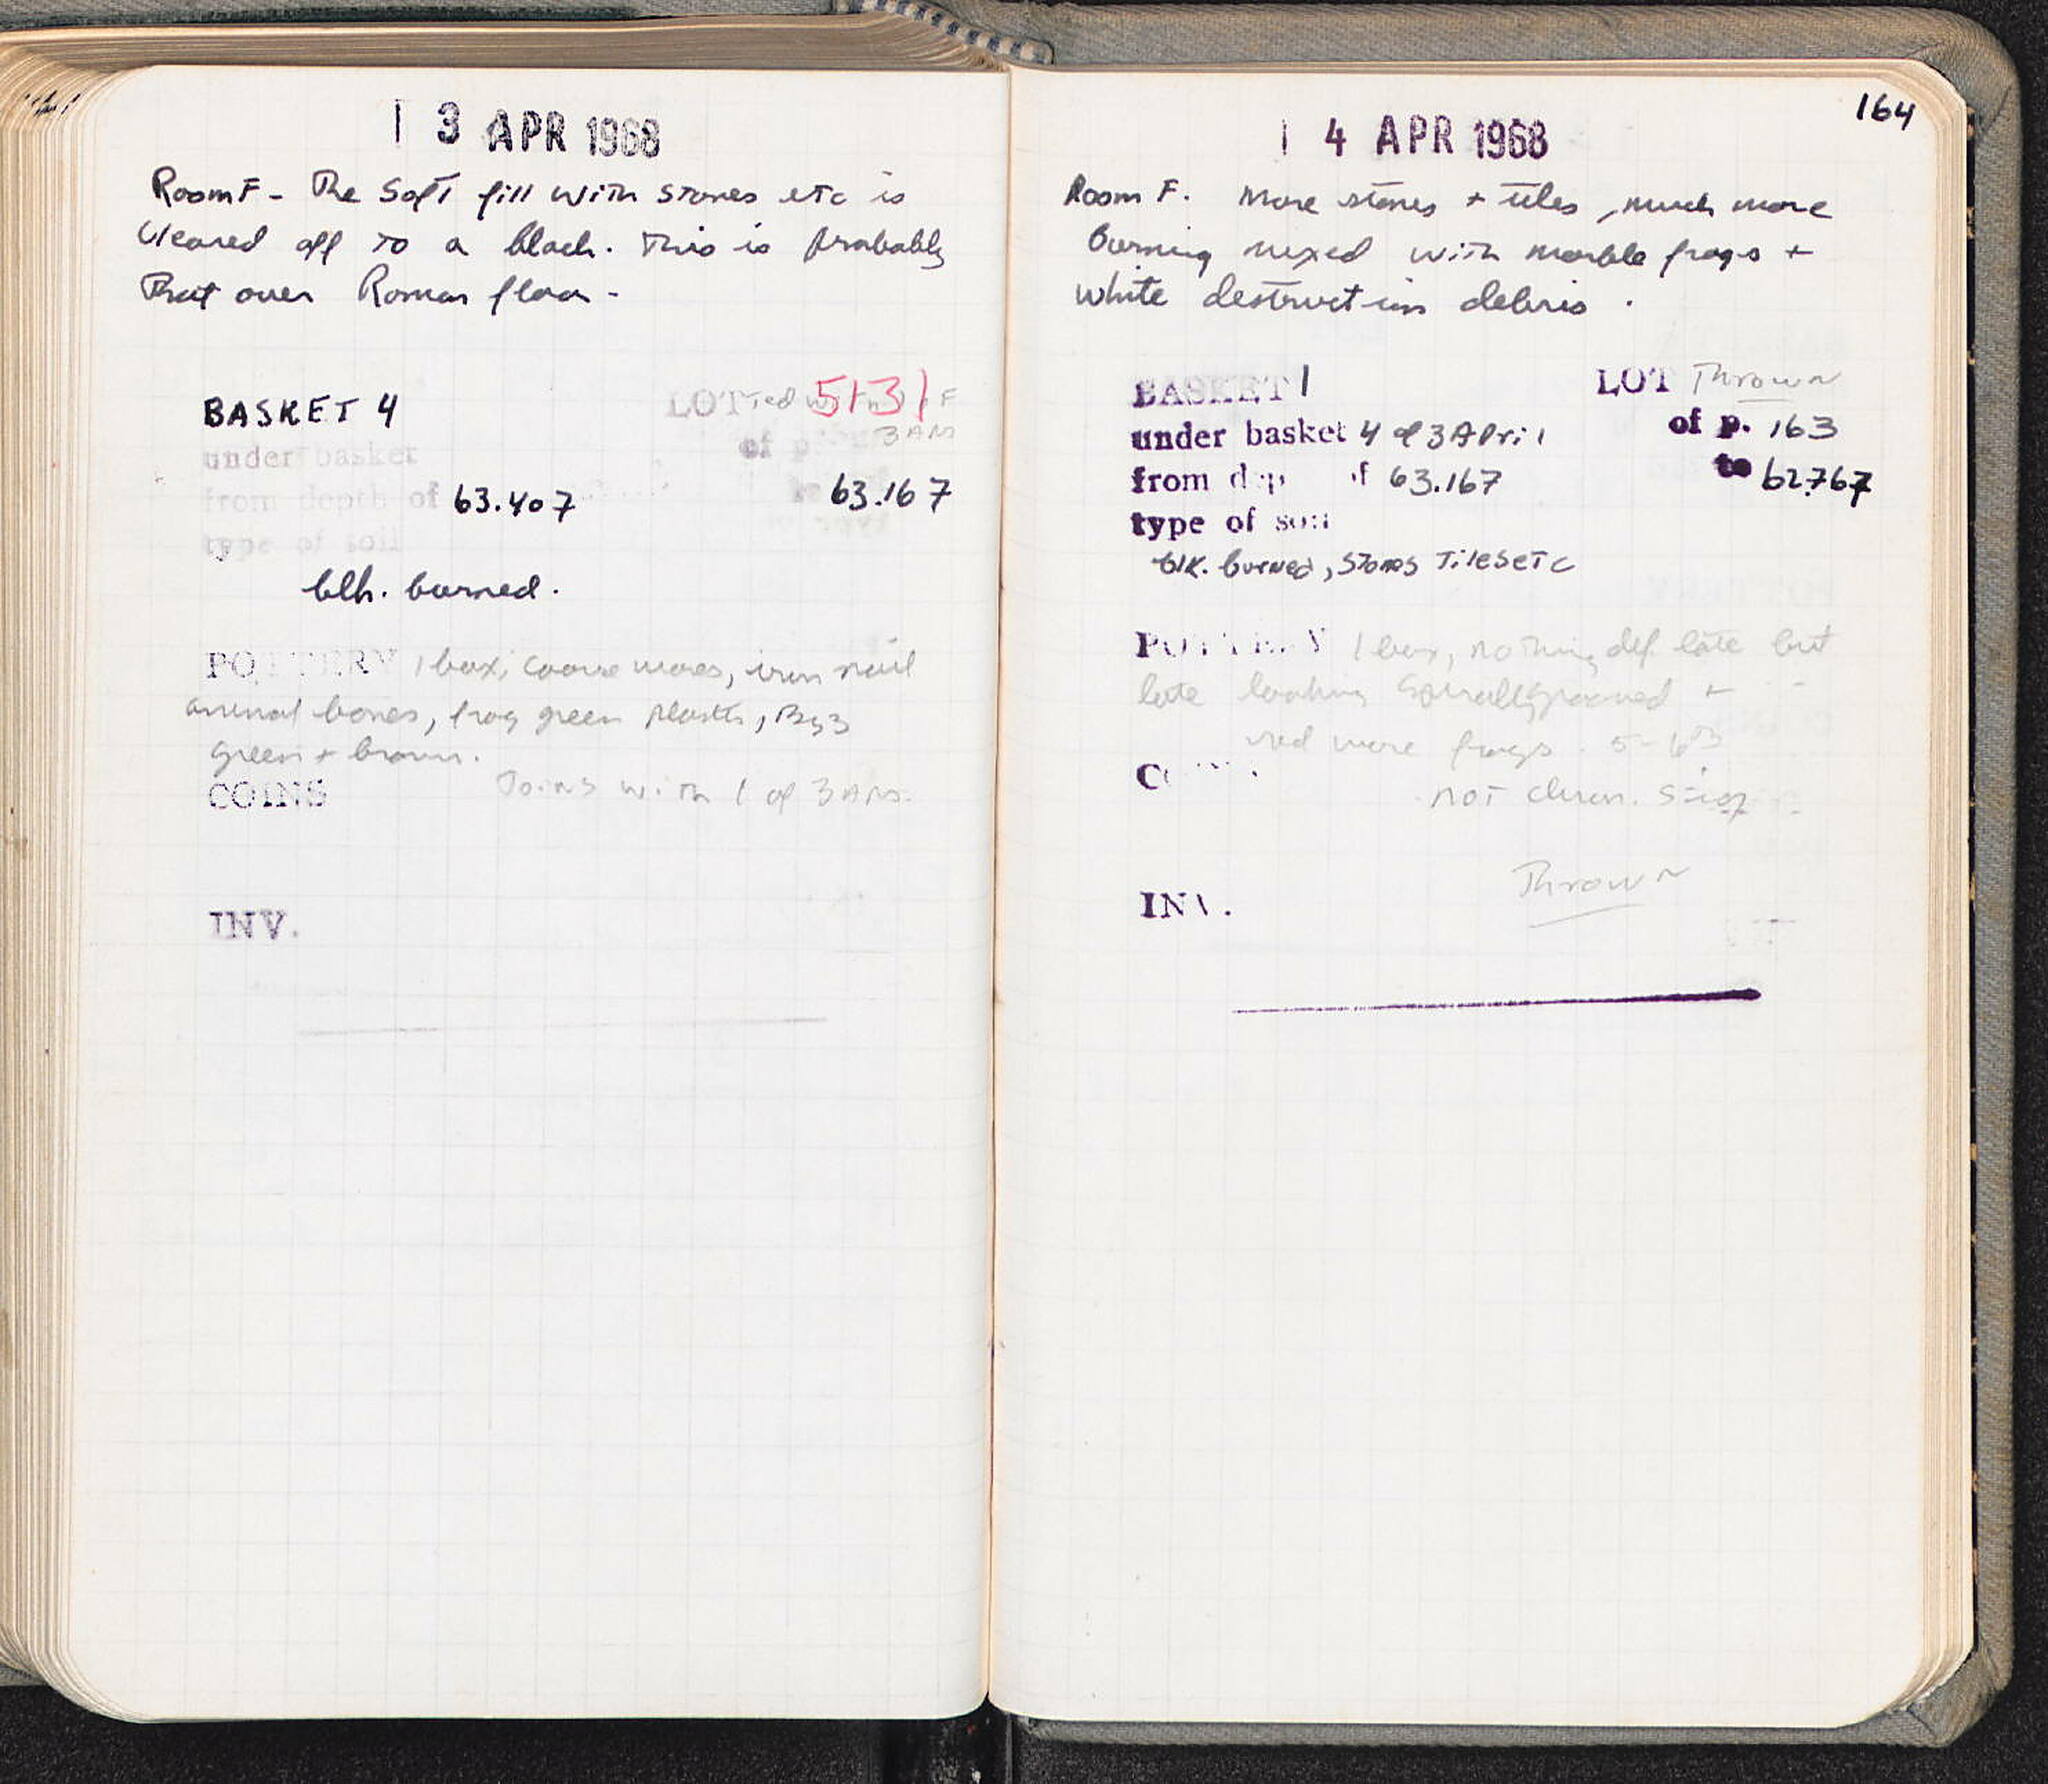 | 3 APR 1968
Room F - The soft fill with stones etc is
cleared off to a black. This is probably
that over Roman floor -
BASKET 4
LOT 5131 F
3 APR
under basket
of p.
from depth of 63.407
63.167
type of soil
blk. burned.
POTTERY 1 box, coarse wares, iron nail
animal bones, frag green plastic, Byz
green + brown.
COINS Joins with 1 of 3 APR.
INV.
164
| 4 APR 1968
Room F. More stones + tiles, much more
burning mixed with marble frags +
white destruction debris.
BASKET 1
LOT Thrown
under basket 4 of 3 April
of p. 163
from dep f 63.167
to 62.767
type of soil
blk. burned, stones tiles etc
POTTERY 1 box, nothing def. late but
late looking spirally grooved +
red ware frags. 5-6
not chron. sig
Thrown
INV.